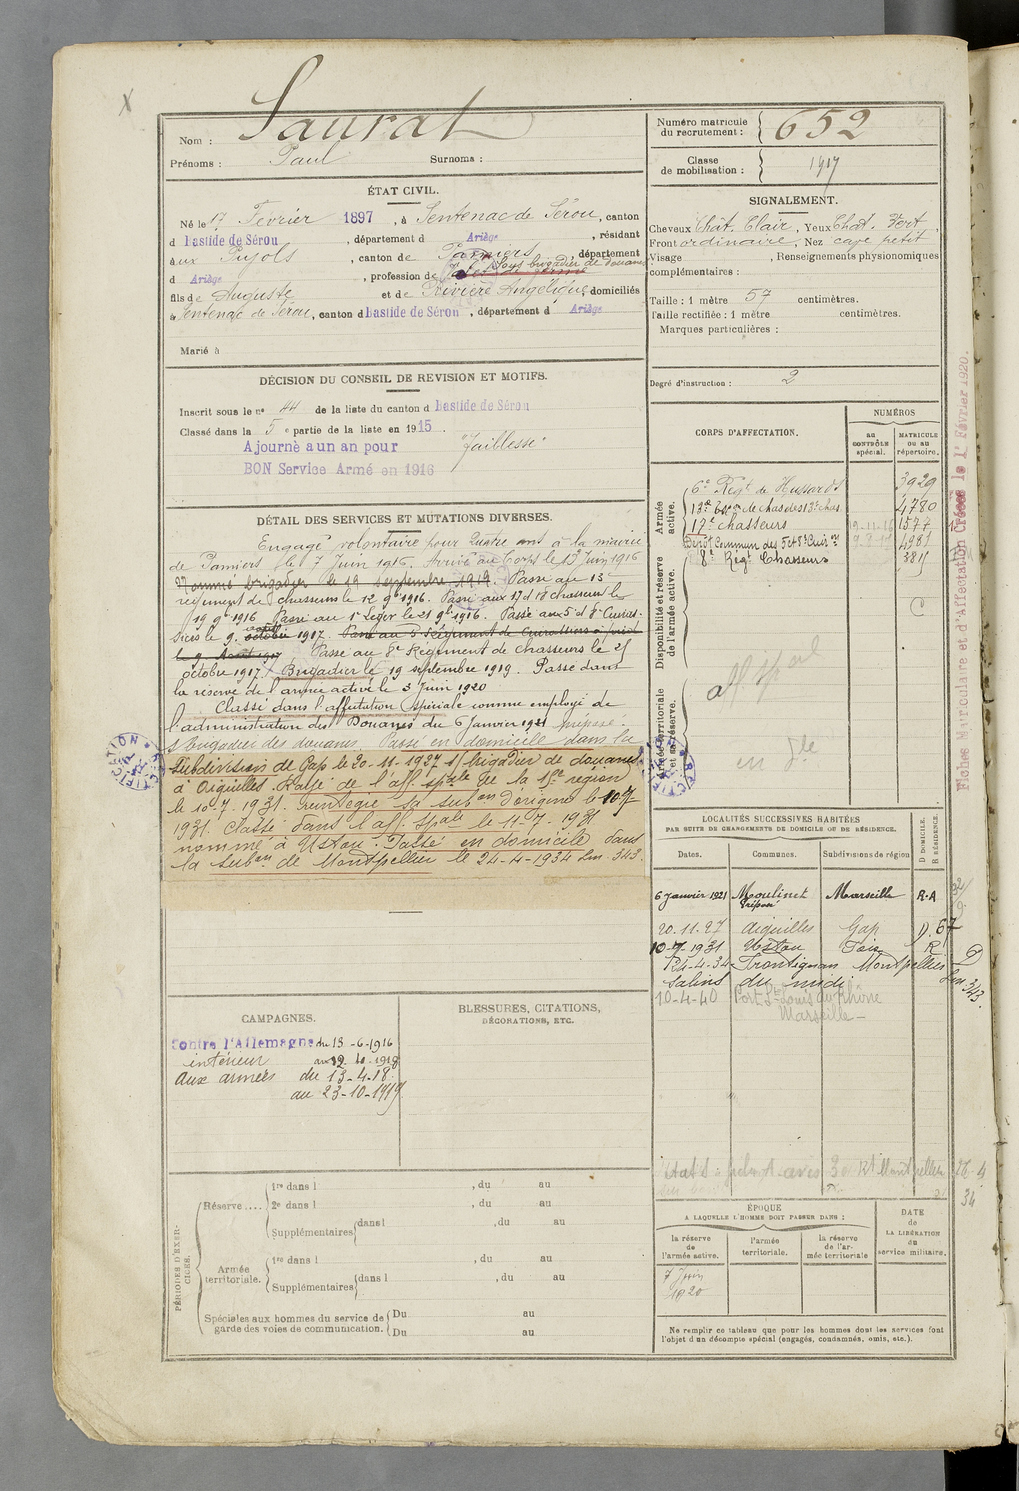 X
Nom : Saurat
Prénoms : Paul Surnoms :
ÉTAT CIVIL.
Né le 17 Février 1897, à Sentenac de Sérou, canton
d Bastide de Sérou, département d Ariège, résidant
aux Pujols, canton de Pamiers, département
d Ariège, profession de sous brigadier de douanes
fils de Auguste et de Rivière Angélique, domiciliés
à Sentenac de Sérou, canton d Bastide de Sérou, département d Ariège
Marié à
DÉCISION DU CONSEIL DE REVISION ET MOTIFS.
Inscrit sous le nº 44 de la liste du canton d Bastide de Sérou
Classé dans la 5e partie de la liste en 1915.
Ajourné a un an pour "faiblesse"
BON Service Armé en 1916
DÉTAIL DES SERVICES ET MUTATIONS DIVERSES.
Engagé volontaire pour quatre ans à la mairie
de Pamiers le 7 Juin 1916. Arrivé au Corps le 13 Juin 1916
Nommé brigadier le 19 septembre 1919. Passé au 13e
régiment de chasseurs le 12 9bre 1916. Passé aux 17e d 18e chasseurs le
19 9bre 1916 Passé au 1er Léger le 21 9bre 1916. Passé aux 5e d 8e Cuiras-
siers le 9 août 1917. Passé au 5e Régiment de Cuirassiers à pied
le 9 Août 1917 Passé au 8e Régiment de chasseurs le 25
octobre 1917. Brigadier le 19 septembre 1919. Passé dans
la réserve de l'armée active le 3 Juin 1920
Classé dans l'affectation spéciale comme employé de
l'administration des Douanes du 6 Janvier 1921 préposé.
s/brigadier des douanes. Passé en domicile dans la
subdivision de Gap le 20-11-1927 s/brigadier de douanes
à Aiguilles. Rayé de l'aff. spale de la 15e région
le 10-7-1931. Réintégré sa subon d'origine le 10-7-
1931. Classé dans l'aff. spale le 11-7-1931
nommé à Ustou. Passé en domicile dans
la subon de Montpellier le 24-4-1934 Lm 343.
CAMPAGNES.
Contre l'Allemagne du 13-6-1916
intérieur au 12-10-1918
Aux armées du 13-4-18
au 23-10-1919
BLESSURES, CITATIONS,
DÉCORATIONS, ETC.
PÉRIODES D'EXERCICES.
Réserve.... 1re dans l , du au
2e dans l , du au
Supplémentaires dans l , du au
Armée territoriale. 1re dans l , du au
Supplémentaires dans l , du au
Spéciales aux hommes du service de garde des voies de communication. Du au
Du au
Numéro matricule du recrutement : 652
Classe de mobilisation : 1917
SIGNALEMENT.
Cheveux Chât. Clair, Yeux Chât. Vert
Front ordinaire, Nez cave petit
Visage , Renseignements physionomiques
complémentaires :
Taille : 1 mètre 57 centimètres.
Taille rectifiée : 1 mètre centimètres.
Marques particulières :
Degré d'instruction : 2
CORPS D'AFFECTATION.
NUMÉROS
au CONTRÔLE spécial.
MATRICULE ou au répertoire.
Armée active.
6e Régt de Hussards 3929
4780
17e chasseurs 19-11-16 1577
Dépôt Commun des 5e et 8e Cuirrs 4981
8e Régt Chasseurs 3811
C
Disponibilité et réserve de l'armée active.
Armée territoriale et sa réserve.
Aff. Spéal
RECTIFICATION
RECTIFICATION
Fiches Matriculaire et d'Affectation Créées le 1er Février 1920.
LOCALITÉS SUCCESSIVES HABITÉES
PAR SUITE DE CHANGEMENTS DE DOMICILE OU DE RÉSIDENCE.
Dates. Communes. Subdivisions de région D DOMICILE. R RÉSIDENCE.
6 Janvier 1921 Moulinet Marseille R.A
Préposé
20.11.27 Aiguilles Gap D. 67
10-7-1931 Ustou Foix R
24-4-34 Frontignan Montpellier D
Salins du midi Lm 343.
10-4-40 Port St Louis du Rhône
Marseille
Rt Montpellier 26-4
34
ÉPOQUE
A LAQUELLE L'HOMME DOIT PASSER DANS :
la réserve de l'armée active.
l'armée territoriale.
la réserve de l'armée territoriale
DATE de LA LIBÉRATION du service militaire.
7 Juin
1920
Ne remplir ce tableau que pour les hommes dont les services font
l'objet d'un décompte spécial (engagés, condamnés, omis, etc.).